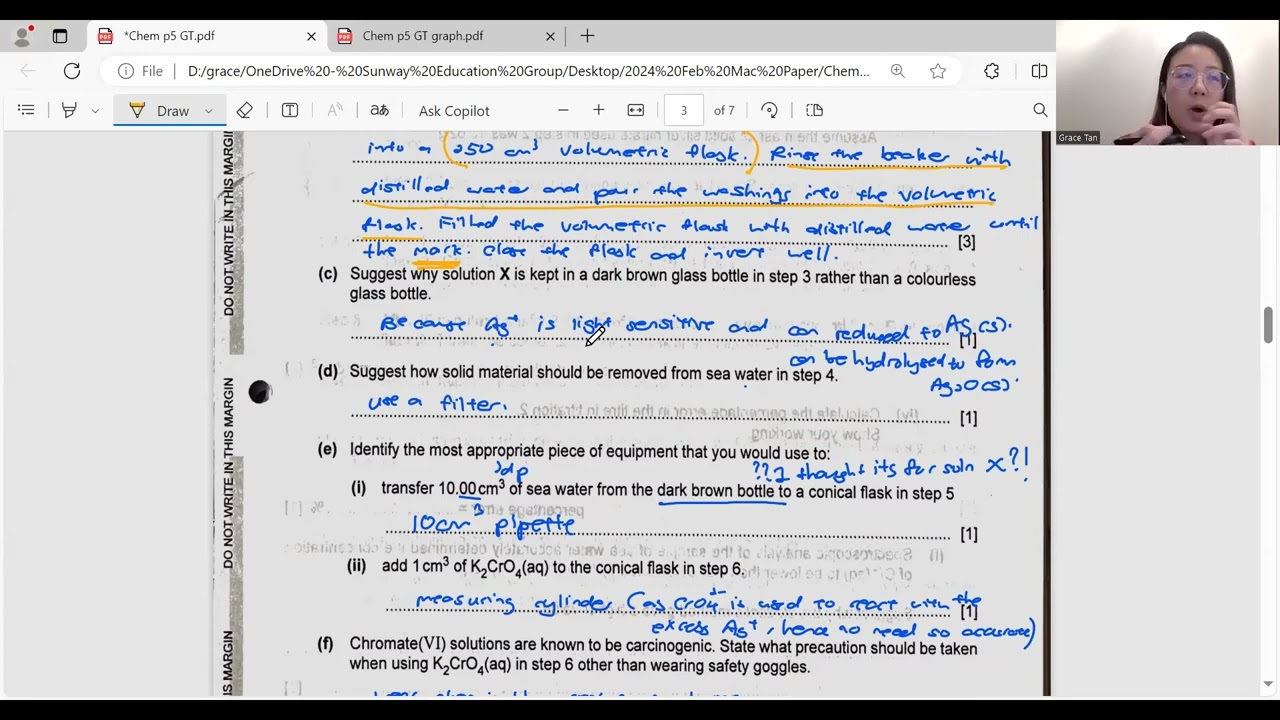 *Chem p5 GT.pdf
Chem p5 GT graph.pdf
File
D:/grace/OneDrive%20-%20Sunway%20Education%20Group/Desktop/2024%20Feb%20Mac%20Paper/Chem...
Draw
Ask Copilot
3 of 7
Grace Tan
into a 250 cm³ volumetric flask. Rinse the beaker with
distilled water and pour the washings into the volumetric
flask. Filled the volumetric flask with distilled water until
[3]
the mark. Close the flask and invert well.
(c) Suggest why solution X is kept in a dark brown glass bottle in step 3 rather than a colourless
glass bottle.
Because Ag⁺ is light sensitive and can reduced to Ag(s).
[1]
can be hydrolysed to form
Ag₂O(s).
(d) Suggest how solid material should be removed from sea water in step 4.
use a filter.
[1]
(e) Identify the most appropriate piece of equipment that you would use to:
2dp
??I thought its for soln X?!
(i) transfer 10.00 cm³ of sea water from the dark brown bottle to a conical flask in step 5
10cm³ pipette
[1]
(ii) add 1 cm³ of K₂CrO₄(aq) to the conical flask in step 6.
measuring cylinder (as CrO₄²⁻ is used to react with the
[1]
excess Ag⁺, hence no need so accurate)
(f) Chromate(VI) solutions are known to be carcinogenic. State what precaution should be taken
when using K₂CrO₄(aq) in step 6 other than wearing safety goggles.
DO NOT WRITE IN THIS MARGIN
DO NOT WRITE IN THIS MARGIN
THIS MARGIN